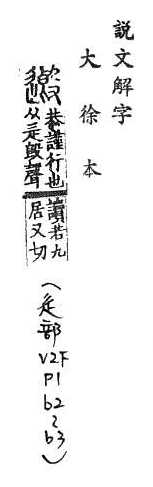 説文解字
大徐本
恭謹行也
从辵𣪘聲
讀若九
居又切
（辵部V2F P1 b2~b3）